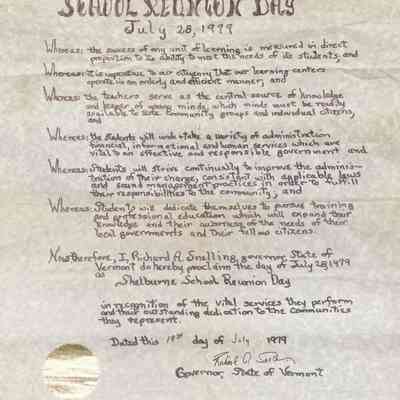 SCHOOL REUNION DAY
July 28, 1979
Whereas: the success of any unit of learning is measured in direct
proportion to its ability to meet the needs of its students, and
Whereas: it is imperative to our citizenry that our learning centers
operate in an orderly and efficient manner, and
Whereas: the teachers serve as the central source of knowledge
and keeper of young minds, which minds must be readily
available to state community groups and individual citizens,
and
Whereas: the students will undertake a variety of administration
financial, informational and human services which are
vital to an effective and responsible government and
Whereas: students will strive continually to improve the adminis-
tration of their charge, consistent with applicable laws
and sound management practices in order to fulfill
their responsibilities to the community, and
Whereas: students will dedicate themselves to pursue training
and professional education which will expand their
knowledge and their awareness of the needs of their
local governments and their fellow citizens.
Now therefore, I, Richard A. Snelling, governor, State of
Vermont do hereby proclaim the day of July 28, 1979
as
Shelburne School Reunion Day
in recognition of the vital services they perform
and their outstanding dedication to the communities
they represent.
Dated this day of July 1979
Governor, State of Vermont